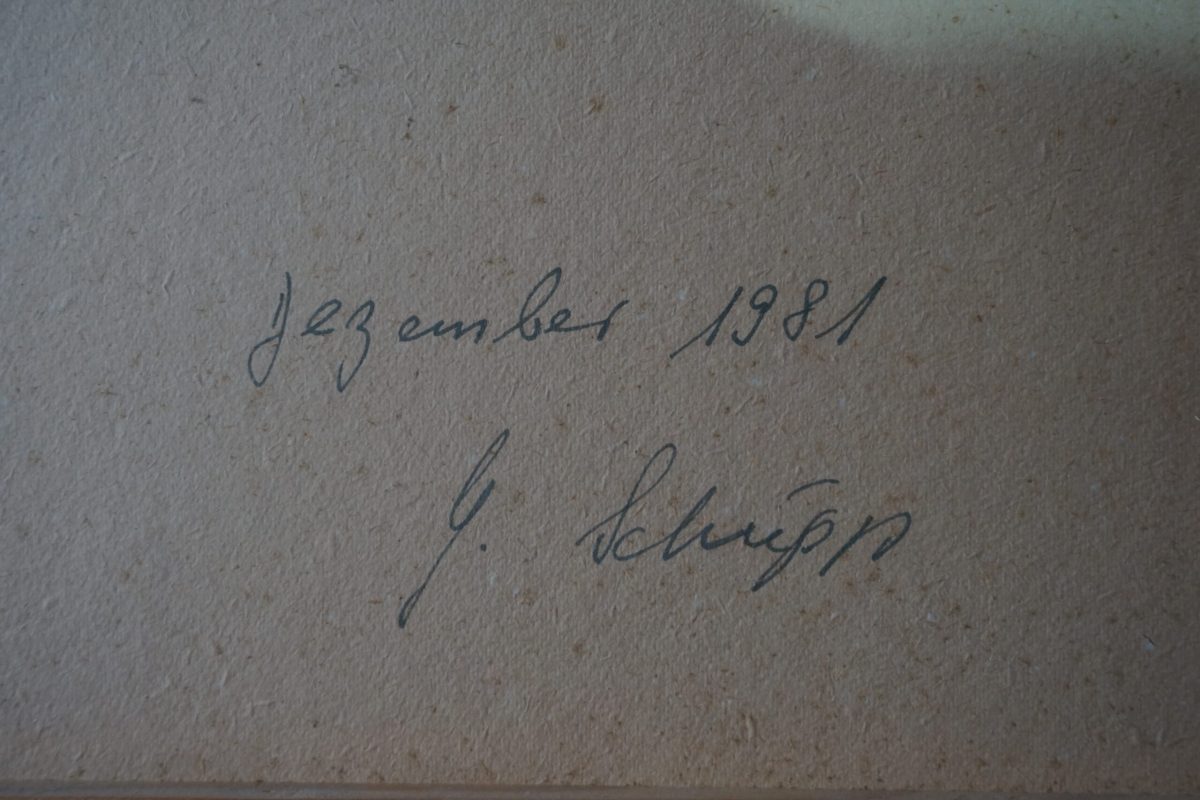 Dezember 1981
G. Schüpp